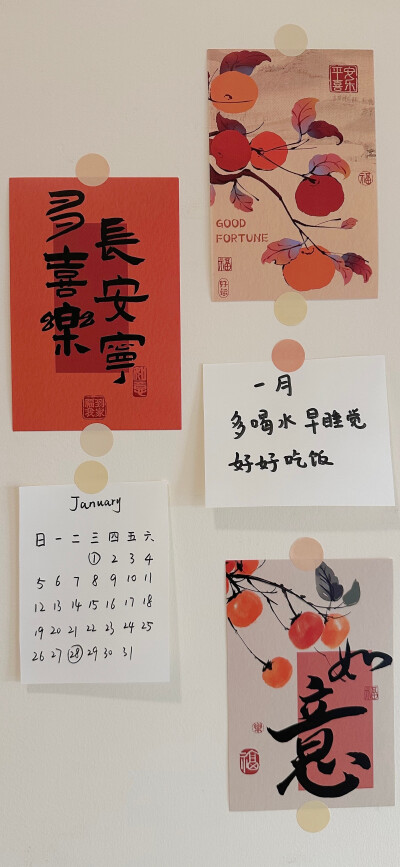 多喜樂
長安寧
平安
喜乐
GOOD
FORTUNE
福
一月
多喝水 早睡觉
好好吃饭
January
日 一 二 三 四 五 六
1 2 3 4
5 6 7 8 9 10 11
12 13 14 15 16 17 18
19 20 21 22 23 24 25
26 27 28 29 30 31
如意
福